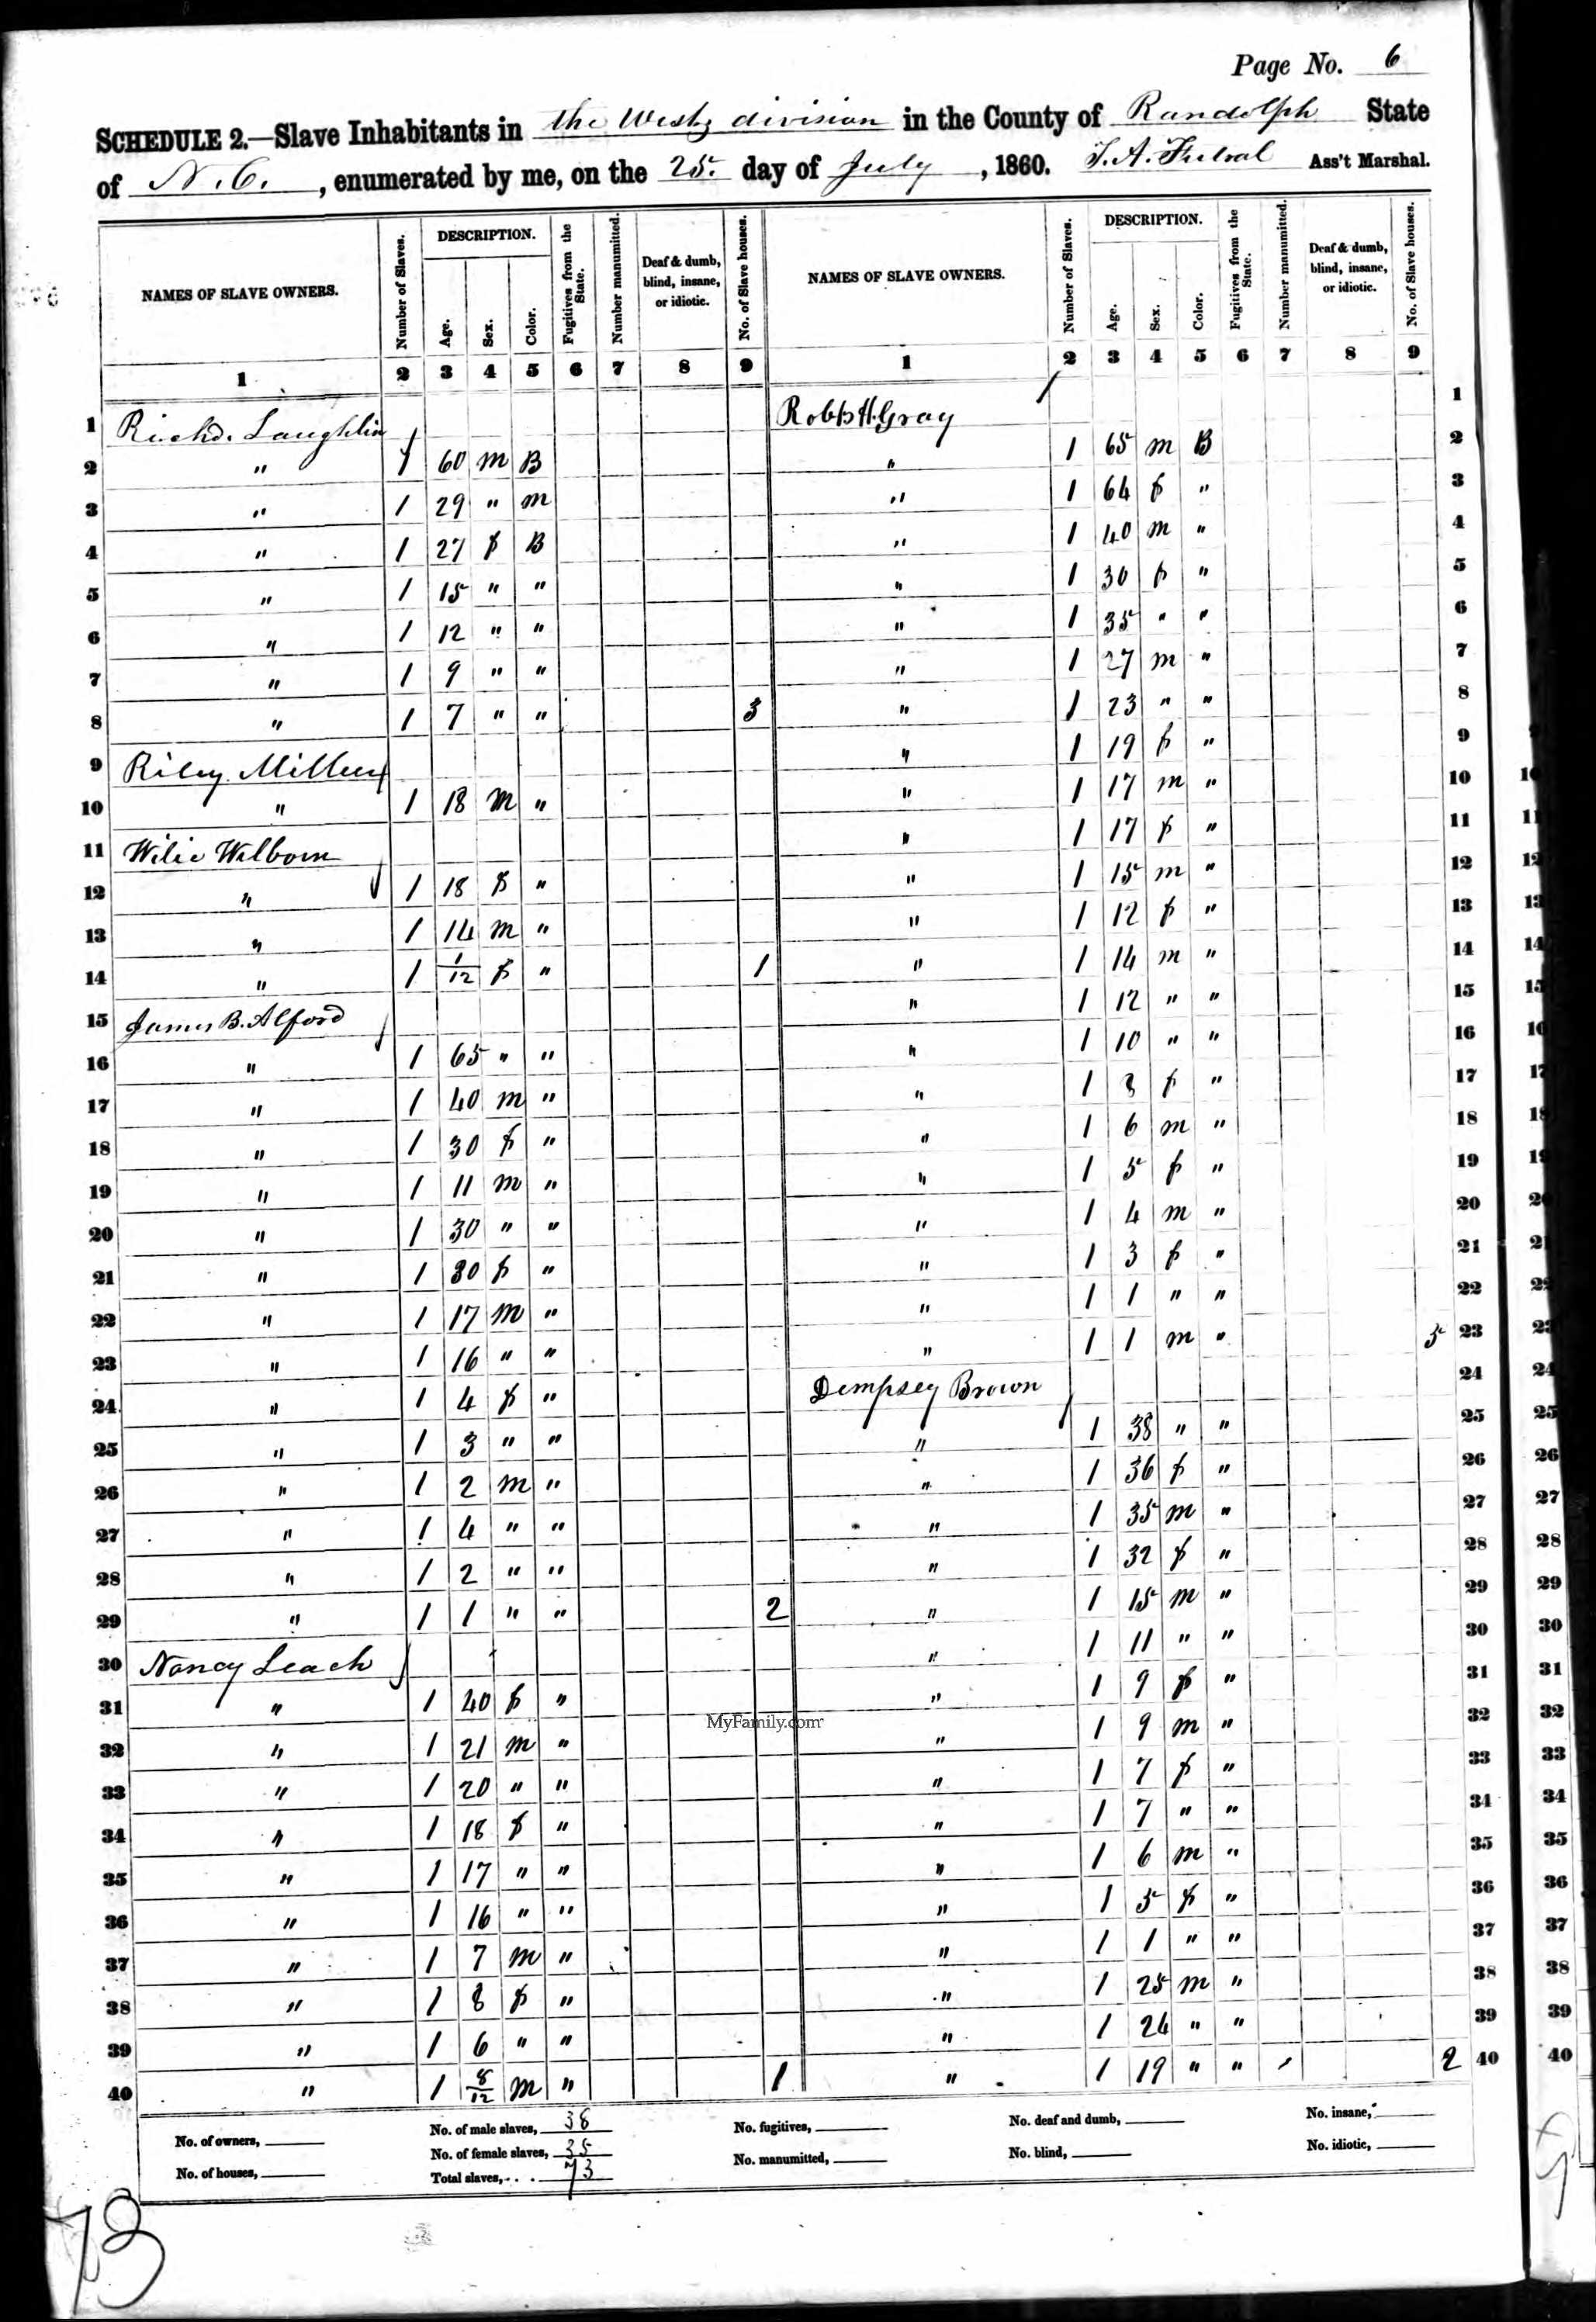 Page No. 6
SCHEDULE 2.—Slave Inhabitants in the West, division in the County of Randolph State
of N. C. , enumerated by me, on the 25. day of July , 1860. Ass't Marshal.
NAMES OF SLAVE OWNERS. Number of Slaves. DESCRIPTION. Age. Sex. Color. Fugitives from the State. Number manumitted. Deaf & dumb, blind, insane, or idiotic. No. of Slave houses. NAMES OF SLAVE OWNERS. Number of Slaves. DESCRIPTION. Age. Sex. Color. Fugitives from the State. Number manumitted. Deaf & dumb, blind, insane, or idiotic. No. of Slave houses.
1 2 3 4 5 6 7 8 9 1 2 3 4 5 6 7 8 9
1 Richd. Laughlin Robt H. Gray 1
2 " 1 60 m B " 1 65 m B 2
3 " 1 29 " m " 1 64 f " 3
4 " 1 27 f B " 1 40 m " 4
5 " 1 15 " " " 1 30 f " 5
6 " 1 12 " " " 1 35 " " 6
7 " 1 9 " " " 1 27 m " 7
8 " 1 7 " " 3 " 1 23 " " 8
9 Riley Miller " 1 19 f " 9
10 " 1 18 m " " 1 17 m " 10
11 Wilie Welborn " 1 17 f " 11
12 " 1 18 f " " 1 15 m " 12
13 " 1 14 m " " 1 12 f " 13
14 " 1 1/12 f " 1 " 1 14 m " 14
15 James B. Alford " 1 12 " " 15
16 " 1 65 " " " 1 10 " " 16
17 " 1 40 m " " 1 8 f " 17
18 " 1 30 f " " 1 6 m " 18
19 " 1 11 m " " 1 5 f " 19
20 " 1 30 " " " 1 4 m " 20
21 " 1 30 f " " 1 3 f " 21
22 " 1 17 m " " 1 1 " " 22
23 " 1 16 " " " 1 1 m " 5 23
24 " 1 4 f " Dempsey Brown 24
25 " 1 3 " " " 1 38 " " 25
26 " 1 2 m " " 1 36 f " 26
27 " 1 4 " " " 1 35 m " 27
28 " 1 2 " " " 1 32 f " 28
29 " 1 1 " " 2 " 1 15 m " 29
30 Nancy Leach " 1 11 " " 30
31 " 1 40 f " " 1 9 f " 31
MyFamily.com
32 " 1 21 m " " 1 9 m " 32
33 " 1 20 " " " 1 7 f " 33
34 " 1 18 f " " 1 7 " " 34
35 " 1 17 " " " 1 6 m " 35
36 " 1 16 " " " 1 5 f " 36
37 " 1 7 m " " 1 1 " " 37
38 " 1 8 f " " 1 25 m " 38
39 " 1 6 " " " 1 24 " " 39
40 " 1 8/12 m " 1 " 1 19 " " 2 40
No. of owners, No. of male slaves, 38 No. fugitives, No. deaf and dumb, No. insane,
No. of houses, No. of female slaves, 35 No. manumitted, No. blind, No. idiotic,
Total slaves, . . . 73
73